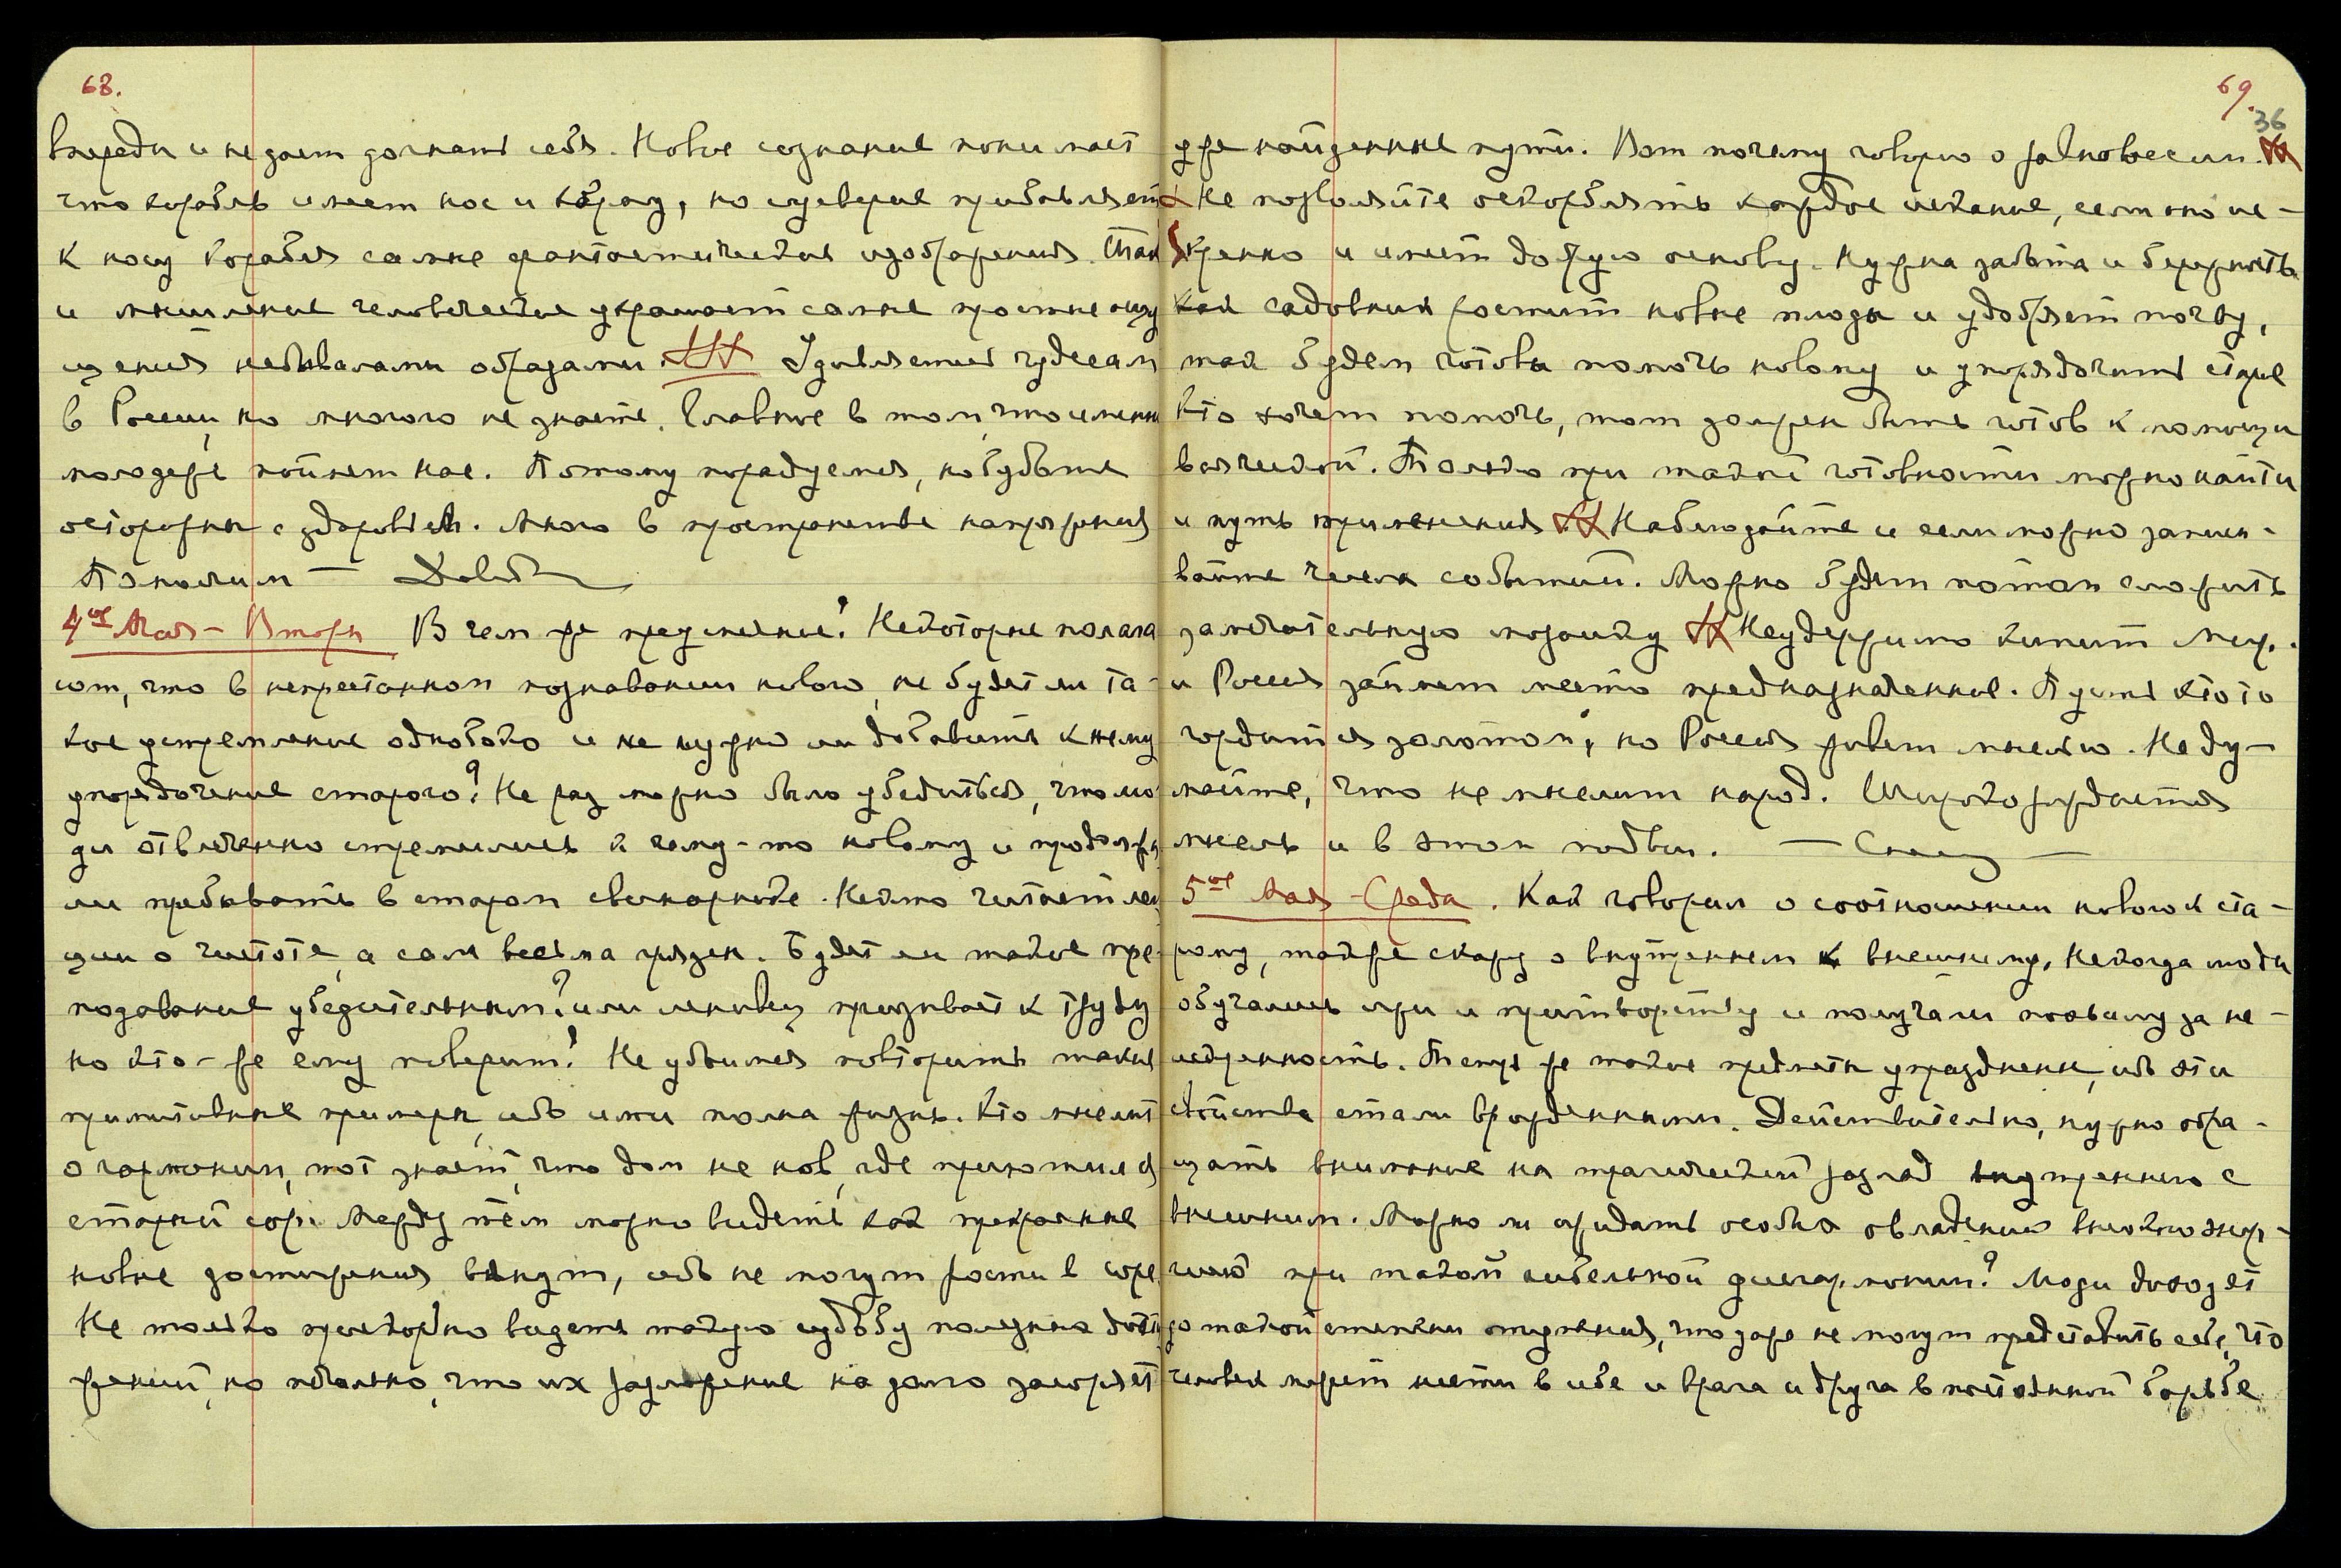 68.
впереди и не дает догнать себя. Новое сознание понимает
что корабль имеет нос и корму, но суеверие прибавляет
к носу корабля самые фантастические изображения. Так
и мышление человеческое украшает самые простые ощу
щения небывалыми образами Удивляетесь чудесам
в России, но многого не знаете. Главное в том, что именно
молодежь поймет нас. Потому порадуемся, но будьте
осторожны с здоровьем. Много в пространстве напряжения
Пошлем —
4ое Мая – Вторн В чем же преуспеяние? Некоторые полага
ют, что в непрестанном познавании нового, не будет ли та-
кое устремление однобоко и не нужно ли добавить к нему
упорядочение старого? Не раз можно было убедиться, что лю
ди отвлеченно стремились к чему-то новому и продолжа
ли пребывать в старом свинарнике. Некто читает лек
ции о чистоте, а сам весьма грязен. Будет ли такое пре-
подавание убедительным? или ленивец призывает к труду
но кто-же ему поверит? Не убоимся повторить такие
примитивные примеры, ибо ими полна жизнь. Кто мыслит
о гармонии, тот знает, что дом не нов, где приютился
старый сор. Между тем можно видеть как прекрасные
новые достижения вянут, ибо не могут рости в соре
Не только прискорбно видеть такую судьбу полезных дости
жений, но печально, что их разложение надолго засоряет
69.
36
уже найденные пути. Вот почему говорю о равновесии.
Не позволяйте оскорблять каждое искание, если оно ис-
кренно и имеет добрую основу. Нужна забота и бережность
Как садовник ростит новые плоды и удобряет почву,
так будем готовы помочь новому и упорядочить старое
Кто хочет помочь, тот должен быть готов к помощи
всяческой. Только при такой готовности можно найти
и путь применения Наблюдайте и если можно записы-
вайте числа событий. Можно будет потом сложить
замечательную мозаику Неудержимо кипит мир.
и Россия займет место предназначенное. Пусть кто то
гордится золотом, но Россия живет мыслью. Не ду-
майте, что не мыслит народ. Широко рождается
мысль и в этом подвиг. —
5ое Мая – Среда. Как говорил о соотношении нового к ста-
рому, также скажу о внутреннем к внешнему. Некогда люди
обучались лжи и притворству и получали похвалу за не-
искренность. Теперь же такие предметы упразднены, ибо эти
свойства стали врожденными. Действительно, нужно обра-
щать внимание на трагический разлад внутреннего с
внешним. Можно ли ожидать особых овладений высокою энер-
гиею при такой гибельной дисгармонии? Люди доходят
до такой степени отупения, что даже не могут представить себе, что
человек может нести в себе и врага и друга в постоянной борьбе